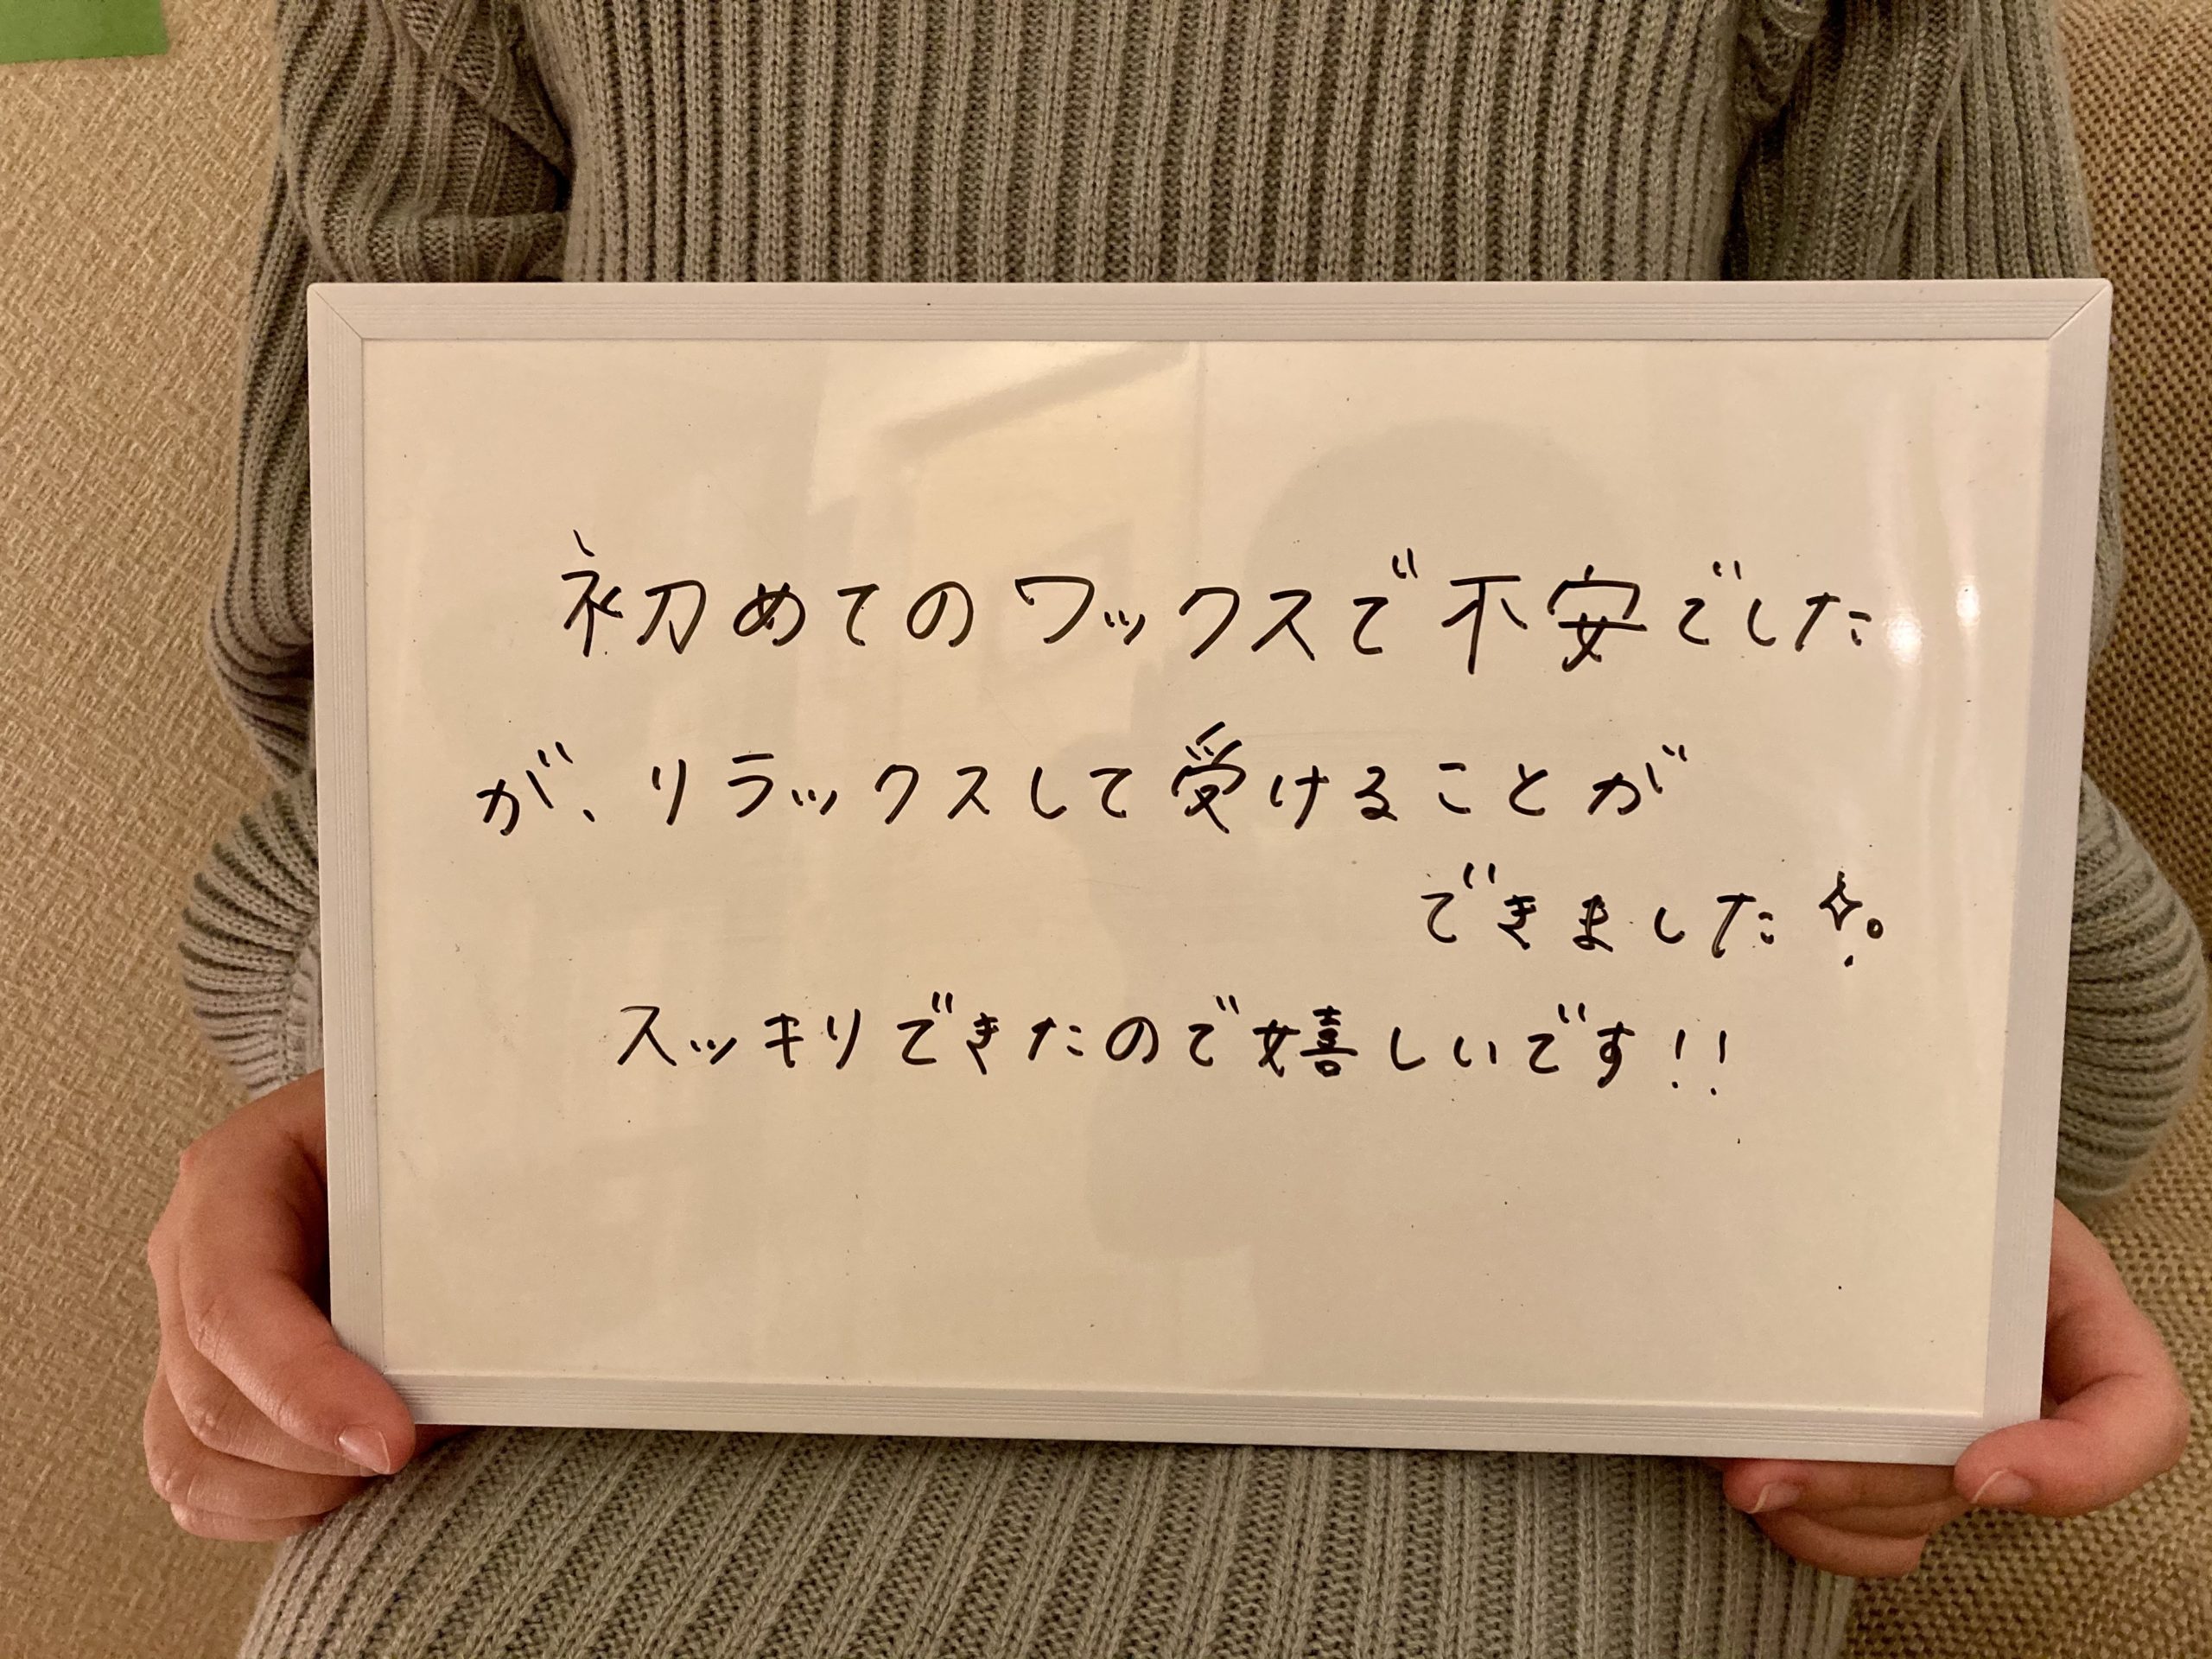 初めてのワックスで不安でした
が、リラックスして受けることが
できました✧。
スッキリできたので嬉しいです!!